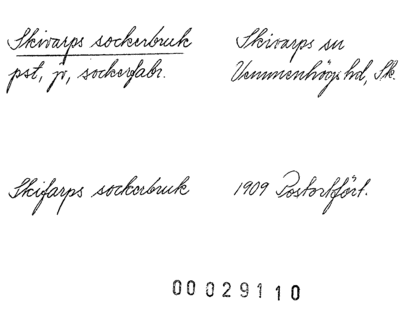 Skivarps sockerbruk
pst, jv, sockerfabr.
Skivarps sn
Vemmenhögs hd, Sk.
Skifarps sockerbruk
1909 Postortfört.
00029110